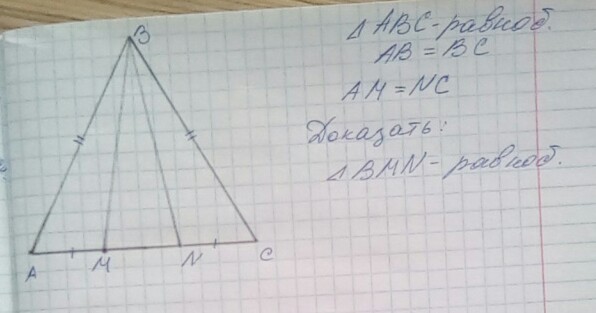 B
Δ ABC - равноб.
AB = BC
AM = NC
Доказать:
Δ BMN - равноб.
A M N C